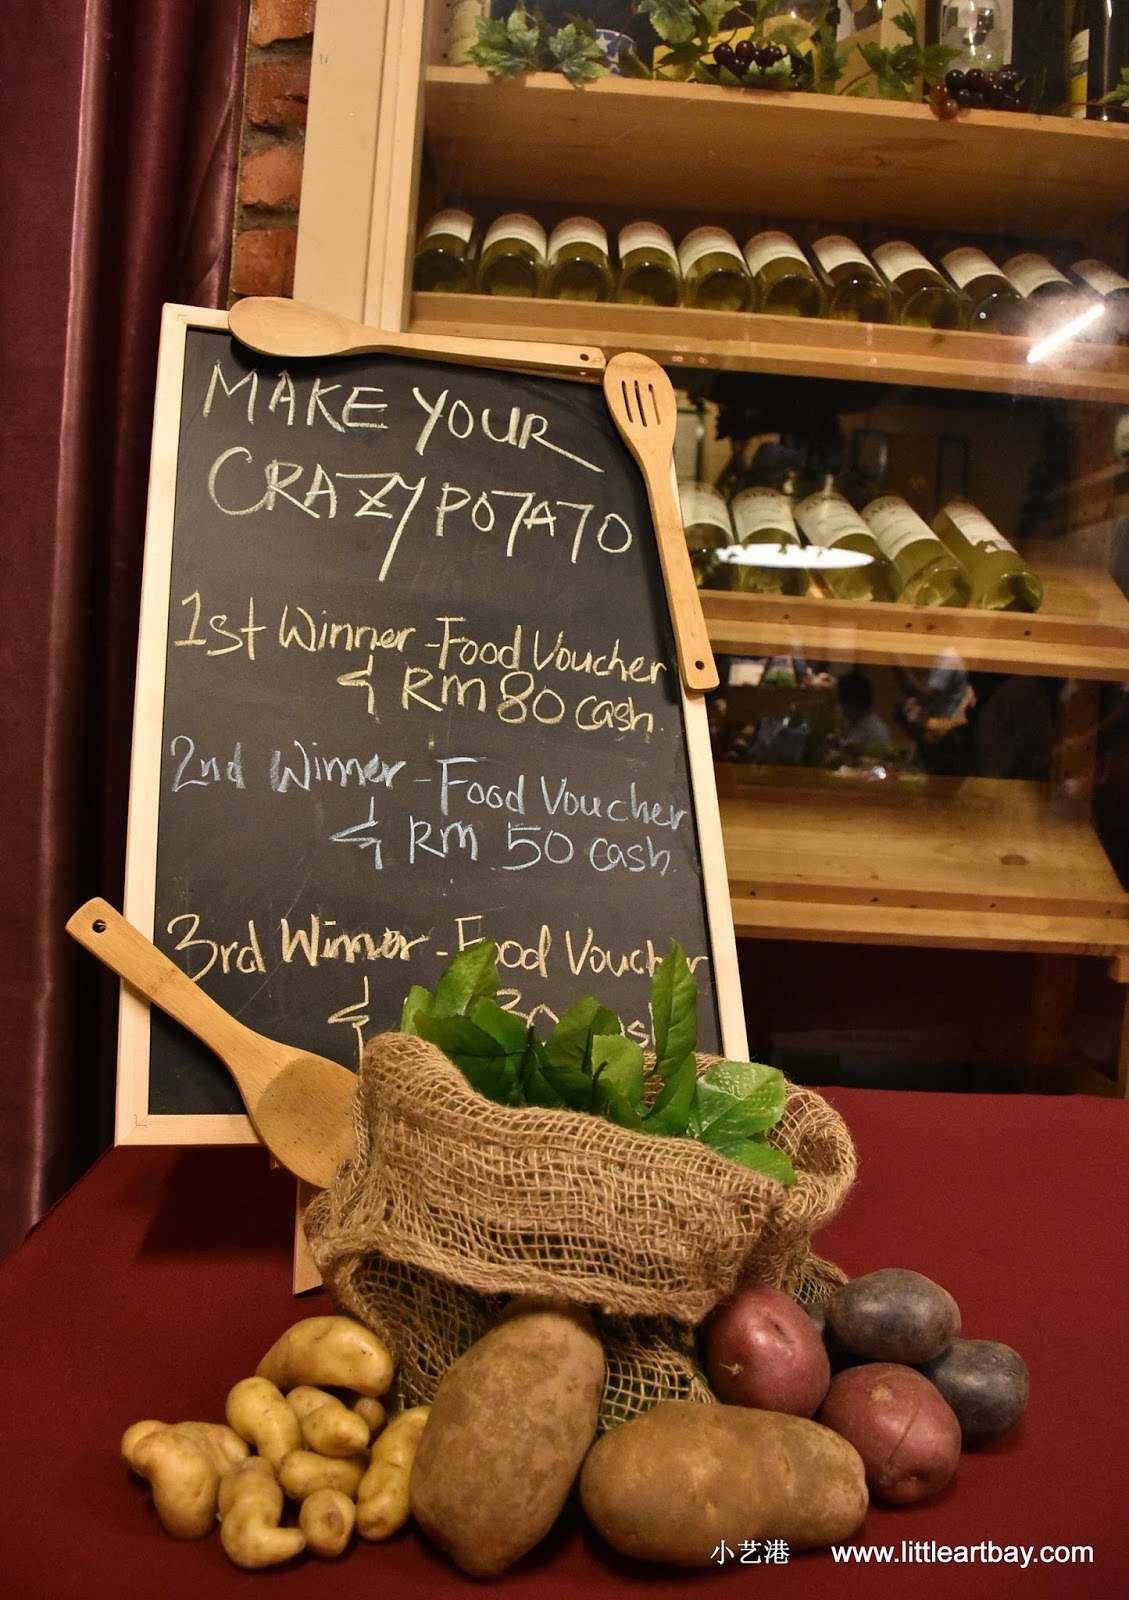 MAKE YOUR
CRAZY POTATO
1st Winner - Food Voucher
& RM 80 cash.
2nd Winner - Food Voucher
& RM 50 cash.
3rd Winner - Food Voucher
& 30 cash
小艺港 www.littleartbay.com